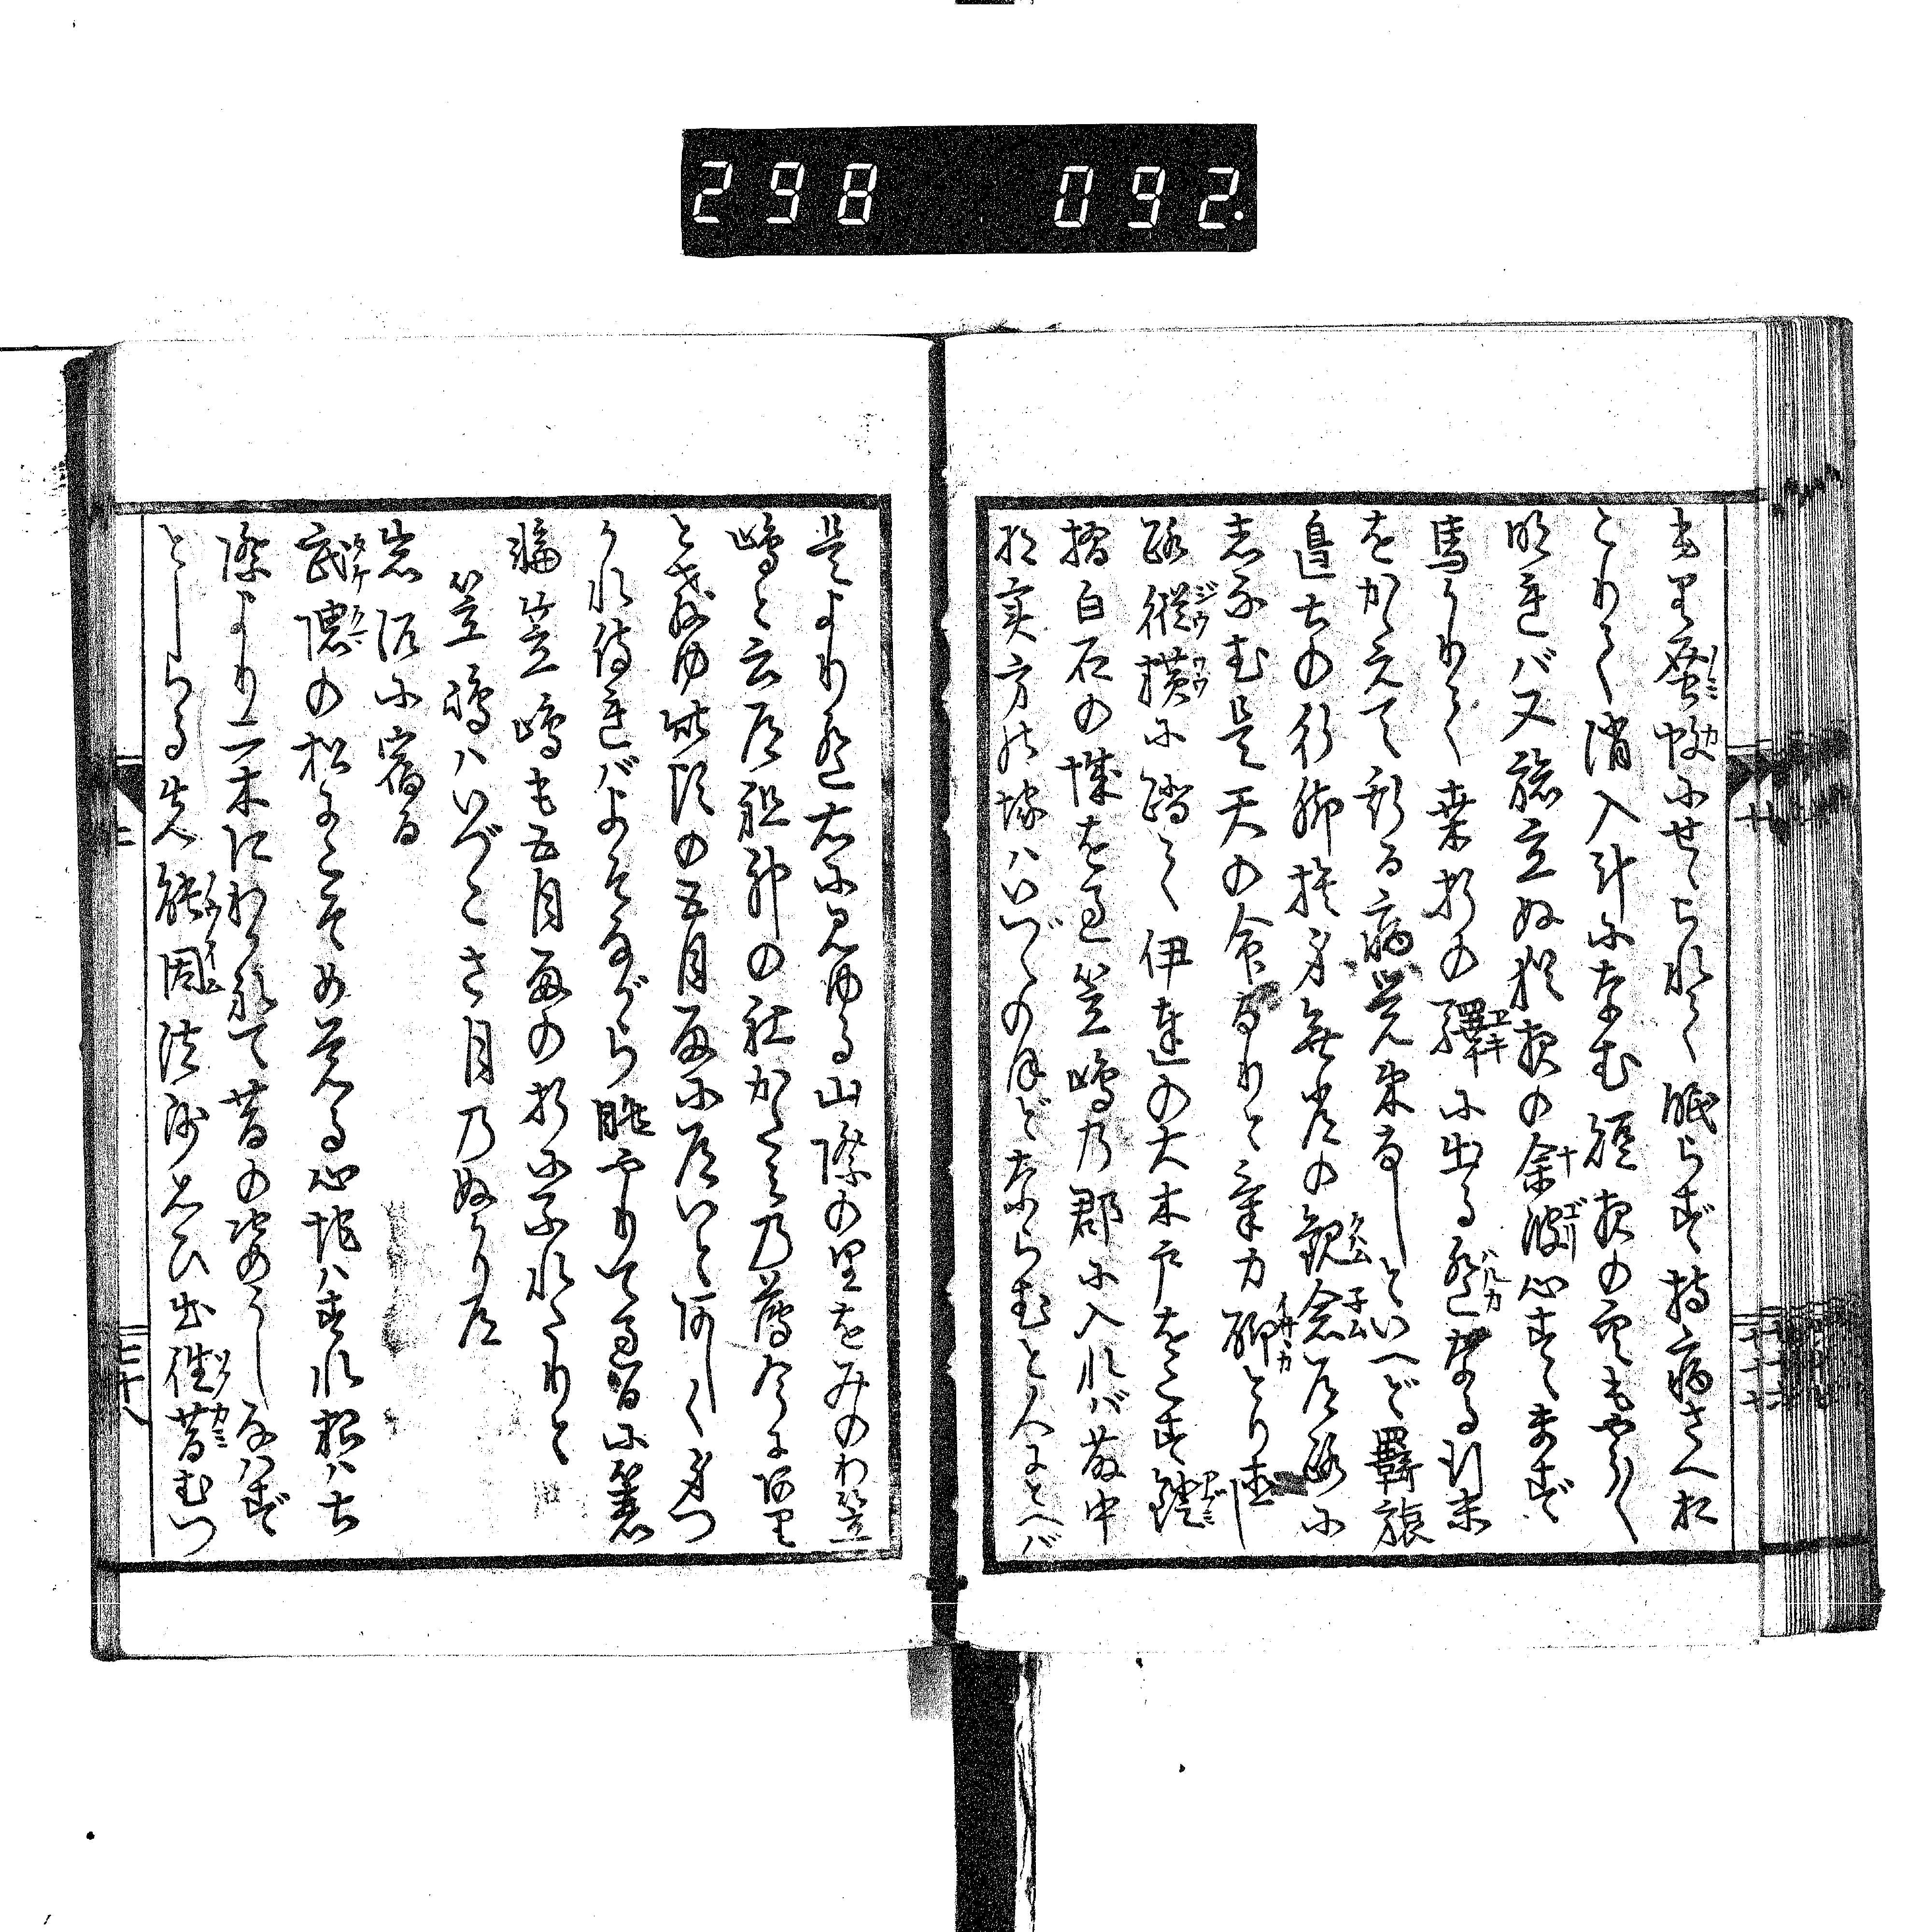 298 092.
もり蚤蚊にせゝられて眠らず持病さへお
こりて消入斗になむ短夜の空もやう〱
明れバ又旅立ぬ猶夜の余波心すゝまず
馬かりて桑折の驛に出る遙なる行末
をかゝえて斯る病覚束なしといへど羇旅
邊土の行脚捨身無常の観念道路に
志なむ是天の命なりと気力聊とり直し
路縦横に踏て伊達の大木戸をこす鐙
摺白石の城を過笠嶋乃郡に入れバ藤中
将実方の塚ハいづくのほどならむと人にとへバ
是より遙右に見ゆる山際の里をみのわ笠
嶋と云道祖神の社かたミ乃薄今に阿里
と教ゆ此頃の五月雨に道いと阿しく身つ
かれ侍れバよそながら眺やりて過るに蓑
輪笠嶋も五月雨の折にふれたりと
笠嶋ハいづこさ月乃ぬかり道
岩沼に宿る
武隈の松にこそめ覚る心地ハすれ根ハ土
際より二木にわかれて昔の姿うしなハず
としらる先能因法師思ひ出往昔むつ
三十八